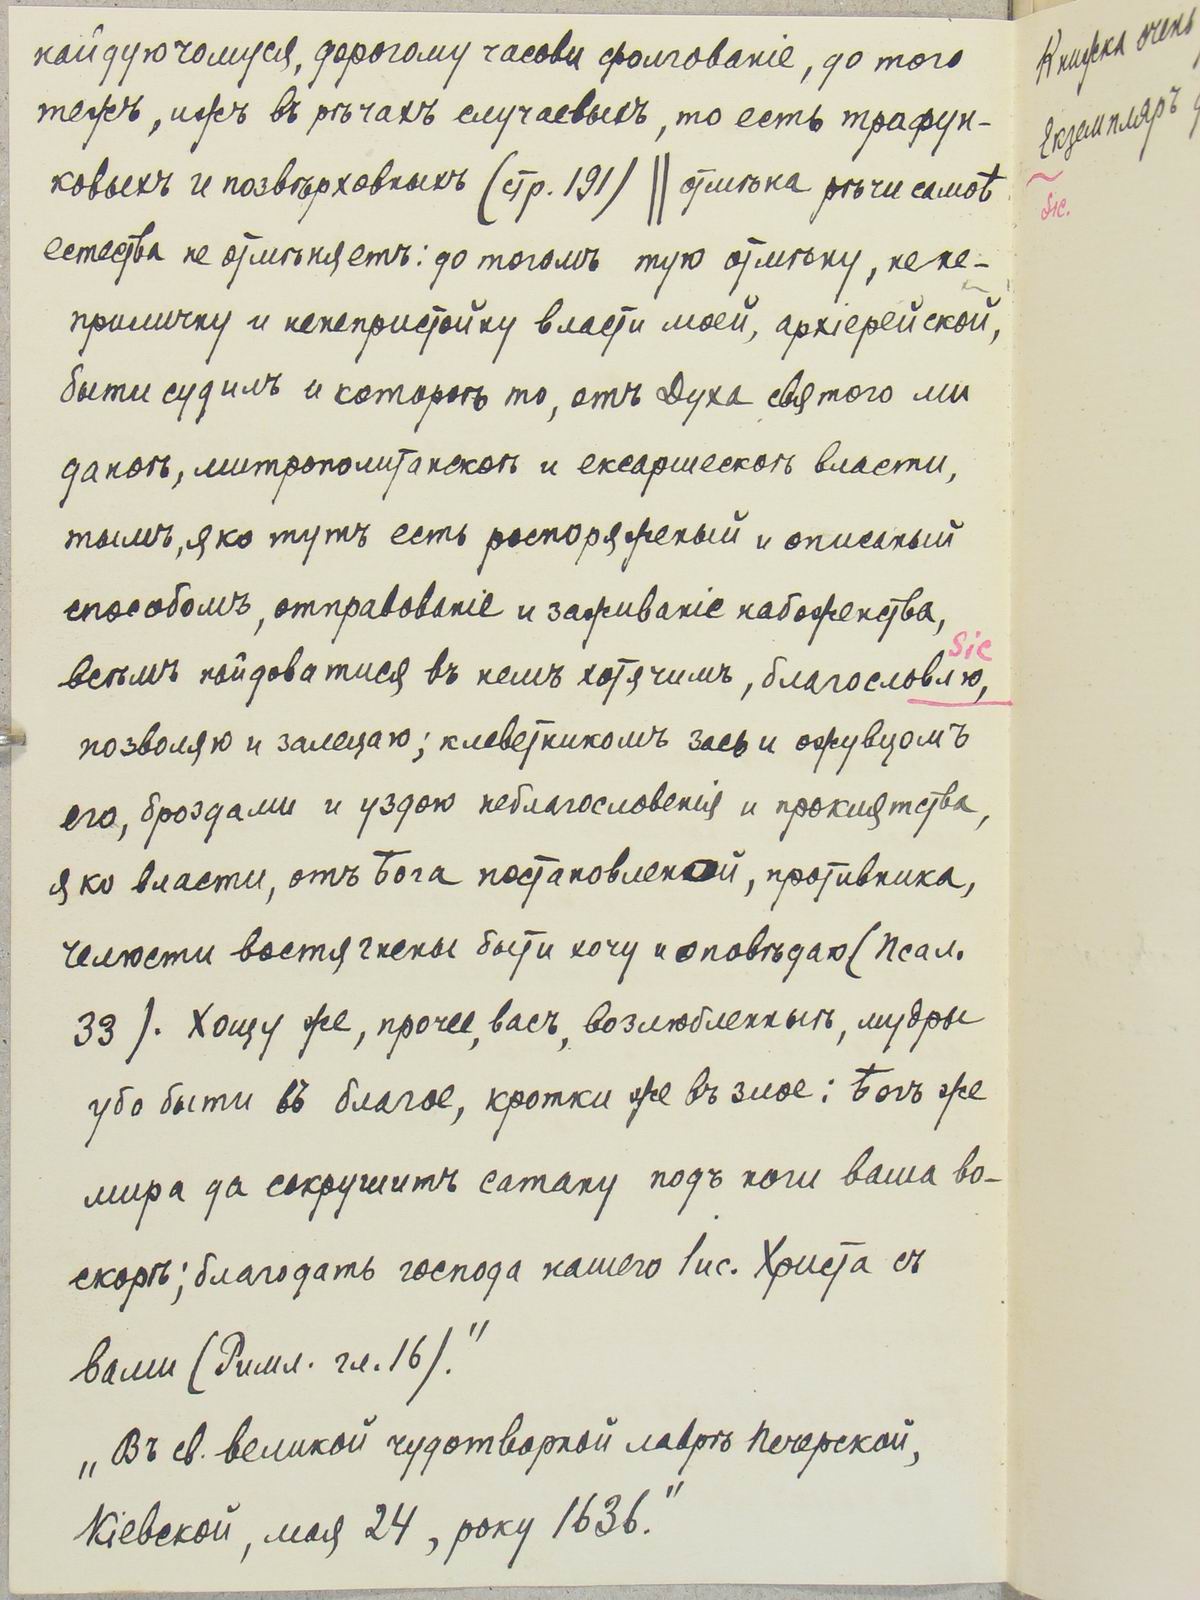 найдуючомуся, дорогому часови фолгованіе, до того
тежъ, ижъ въ рѣчахъ случаевыхъ, то есть трафун-
ковыхъ и позвѣрховныхъ (стр. 191) || отмѣна рѣчи самоѣ
естества не отмѣняетъ: до тогомъ тую отмѣну, не не-
приличну и ненепристойну власти моей, архіерейской,
быти судилъ и которотъ то, отъ Духа святого ми
даноѣ, митрополитанскоѣ и ексаршескоѣ власти,
тымъ, яко тутъ есть роспоряженый и описаный
способомъ, отправованіе и заживаніе набоженства,
sic
всѣмъ найдоватися въ немъ хотячимъ, благословлю,
позволяю и залецаю; клеветникомъ зась и ожувцомъ
его, броздами и уздою неблагословенія и проклятства,
яко власти, отъ Бога постановленой, противника,
челюсти востягнены быти хочу и оповѣдаю (Псал.
33). Хощу же, прочее, васъ, возлюбленныѣ, мудры
убо быти въ благое, кротки же въ злое: Богъ же
мира да сокрушитъ сатану подъ ноги ваша во-
скорѣ; благодать господа нашего Іис. Христа съ
вами (Римл. гл. 16)."
„Въ св. великой чудотворной лаврѣ Печерской,
Кіевской, мая 24, року 1636."
Книжка очень
Екземпляръ
Sic.